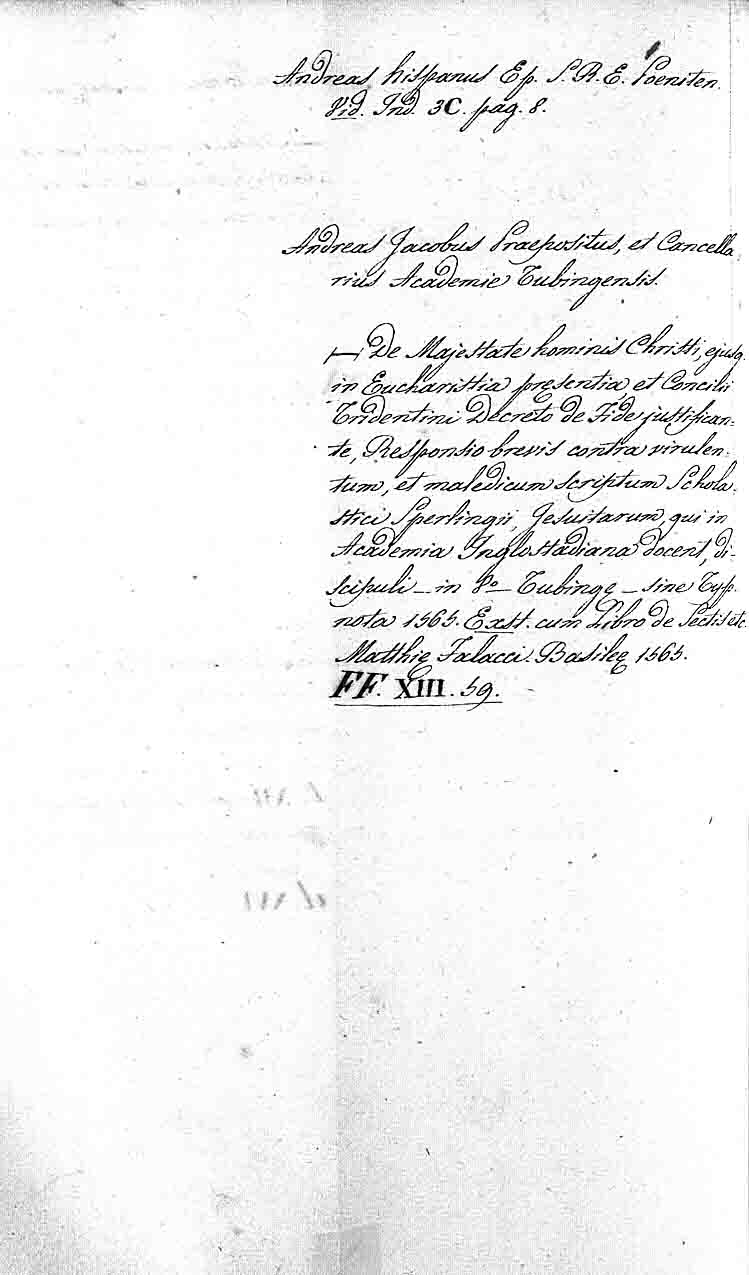 Andreas hispanus Ep. S. R. E. Poeniten.
Vid. Ind. 3C. pag. 8.
Andreas Jacobus Praepositus, et Cancella
rius Academie Tubingensis.
— De Majestate hominis Christi, ejusq.
in Eucharistia presentia, et Concilii
Tridentini Decreto de Fide justifican-
te, Responsio brevis contra virulen-
tum, et maledicum scriptum Schola-
stici Sperlingii, Jesuitarum, qui in
Academia Inglostadiana docent, di-
scipuli – in 8º – Tubingę – sine Typ.
nota 1565. Exst. cum Libro de Sectis etc.
Matthię Falacci. Basileę 1565.
FF. XIII. 59.